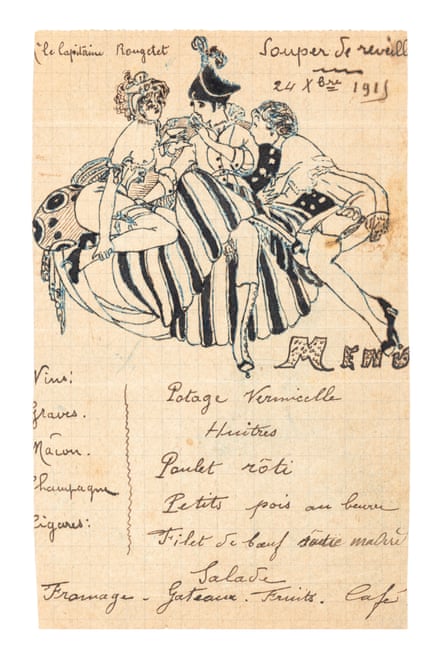 le Capitaine Rougetet
Souper de réveill
24 Xbre 1915
Menu
Vins:
Graves.
Mâcon.
Champagne
Cigares:
Potage Vermicelle
Huîtres
Poulet rôti
Petits pois au beurre
Filet de bœuf madère
Salade
Fromage - Gateaux. Fruits. Café